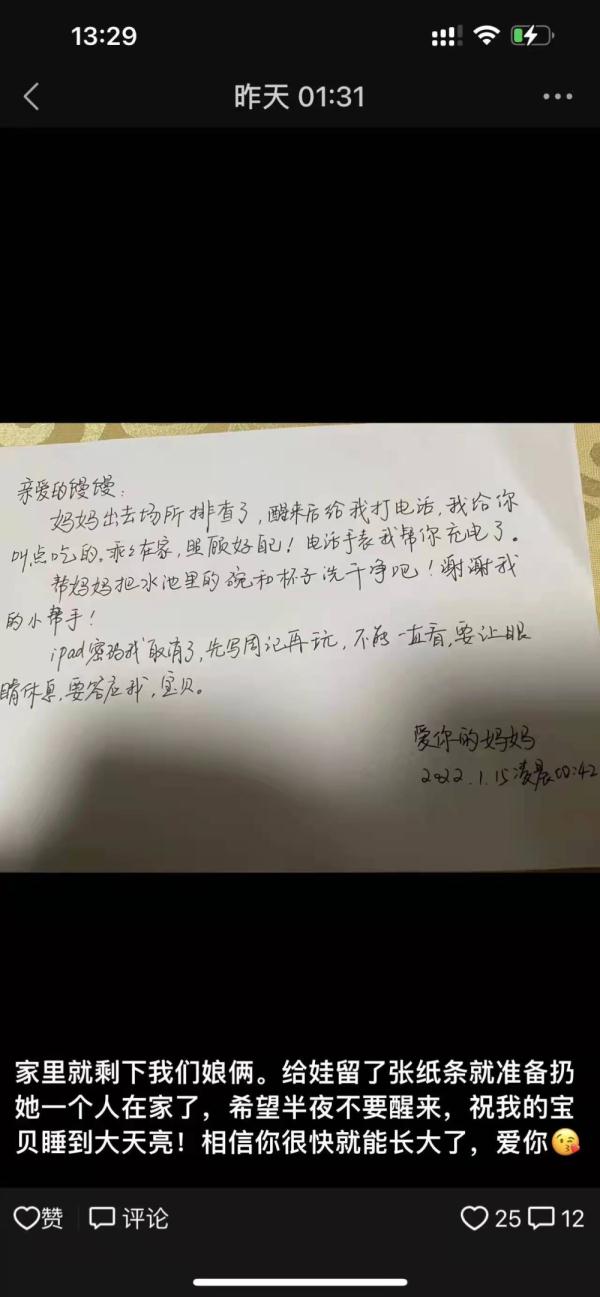 13:29
昨天 01:31
亲爱的馒馒：
妈妈出去场所排查了，醒来后给我打电话，我给你
叫点吃的。乖乖在家，照顾好自己！电话手表我帮你充电了。
帮妈妈把水池里的碗和杯子洗干净吧！谢谢我
的小帮手！
ipad密码我取消了，先写周记再玩，不能一直看，要让眼
睛休息，要答应我，宝贝。
爱你的妈妈
2022.1.15凌晨00:42
家里就剩下我们娘俩。给娃留了张纸条就准备扔
她一个人在家了，希望半夜不要醒来，祝我的宝
贝睡到大天亮！相信你很快就能长大了，爱你😘
赞 评论 25 12